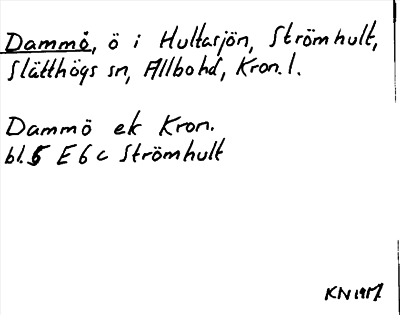 Dammö, ö i Hultasjön, Strömhult,
Slätthögs sn, Allbo hd, Kron. l.
Dammö ek Kron.
bl. 5 E 6 c Strömhult
KN 1917